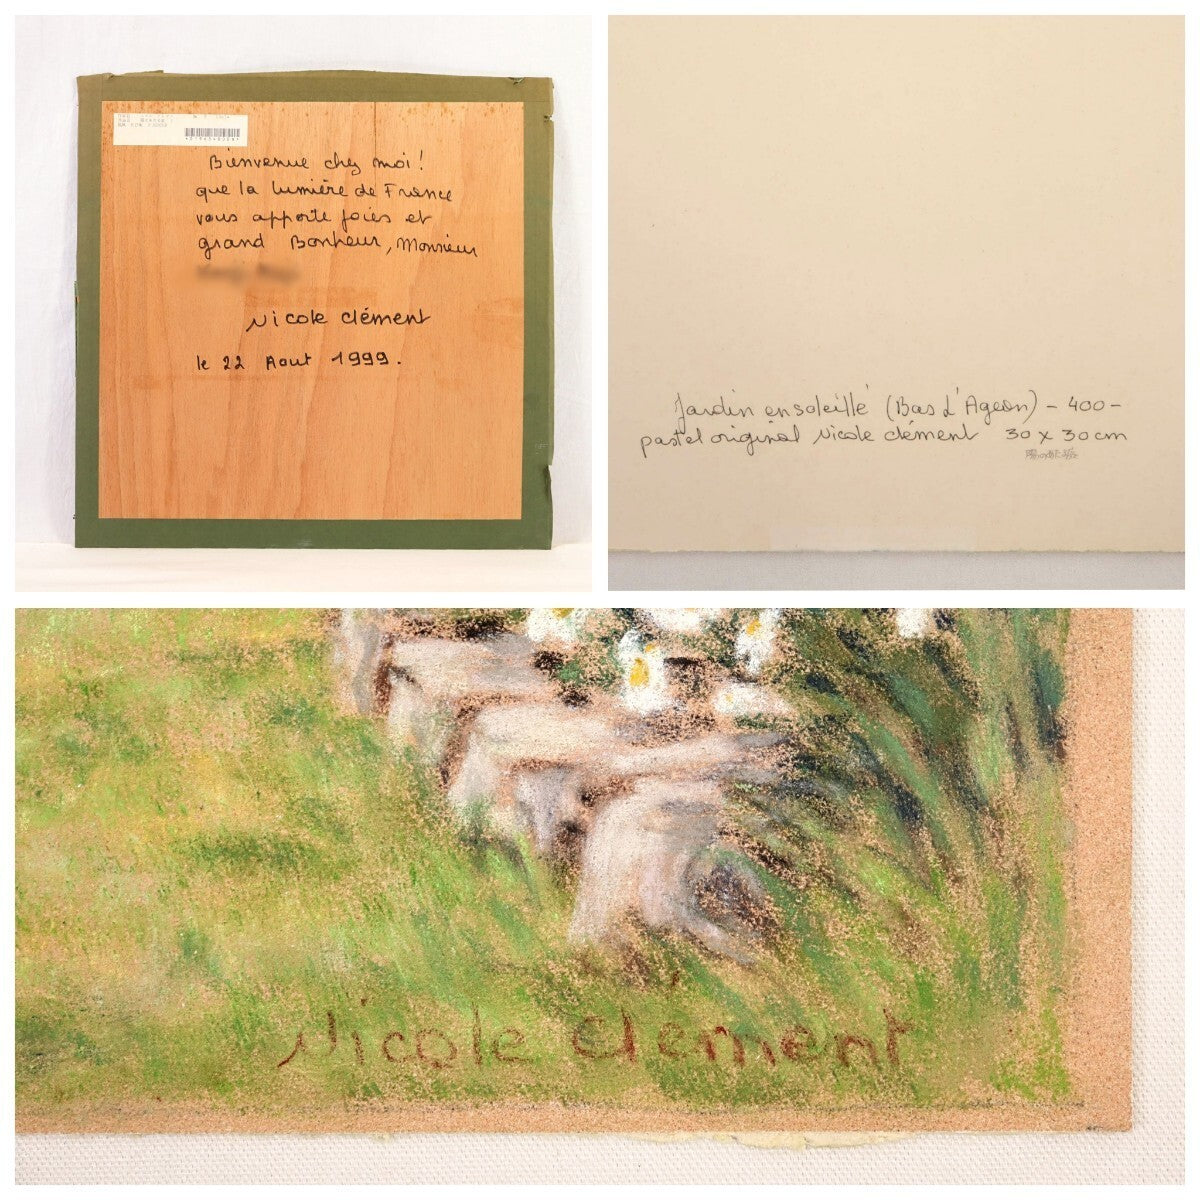 Bienvenue chez moi !
que la lumière de France
vous apporte joies et
grand Bonheur, Monsieur
Nicole Clément
le 22 Aout 1999.
Jardin ensoleillé (Bas d'Ageon) - 400 -
pastel original Nicole Clément 30 x 30 cm
Nicole Clément